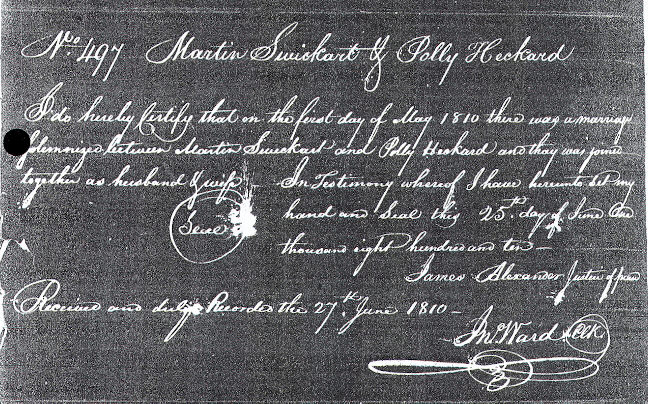 No. 497 Martin Swickart & Polly Heckard
I do hereby Certify that on the first day of May 1810 there was a marriage
Solemnized between Martin Swickart and Polly Heckard and they was joined
together as husband & wife In Testimony whereof I have hereunto Set my
hand and Seal this 25th day of June One
Seal
thousand eight hundred and ten
James Alexander Justice of peace
Received and duly Recorded the 27th June 1810
Jno. Ward Clk